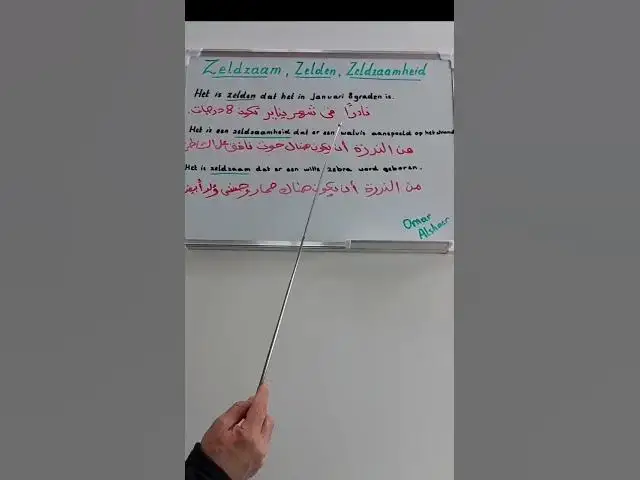 Zeldzaam, Zelden, Zeldzaamheid
Het is zelden dat het in Januari 8 graden is.
نادرًا في شهر يناير تكون 8 درجات.
Het is een zeldzaamheid dat er een walvis aanspoeld op het strand
من الندرة أن يكون هناك حوت نافق على الشاطئ
Het is zeldzaam dat er een witte zebra word geboren.
من الندرة أن يكون هناك حمار وحشي ولد أبيض
Omar